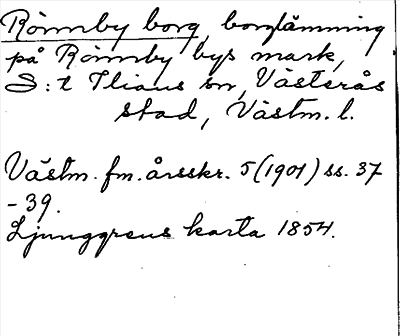 Rönnby borg, borglämning
på Rönnby bys mark,
S:t Ilians sn, Västerås
stad, Västm. l.
Västm. fm. årsskr. 5 (1901) ss. 37
- 39.
Ljunggrens karta 1854.